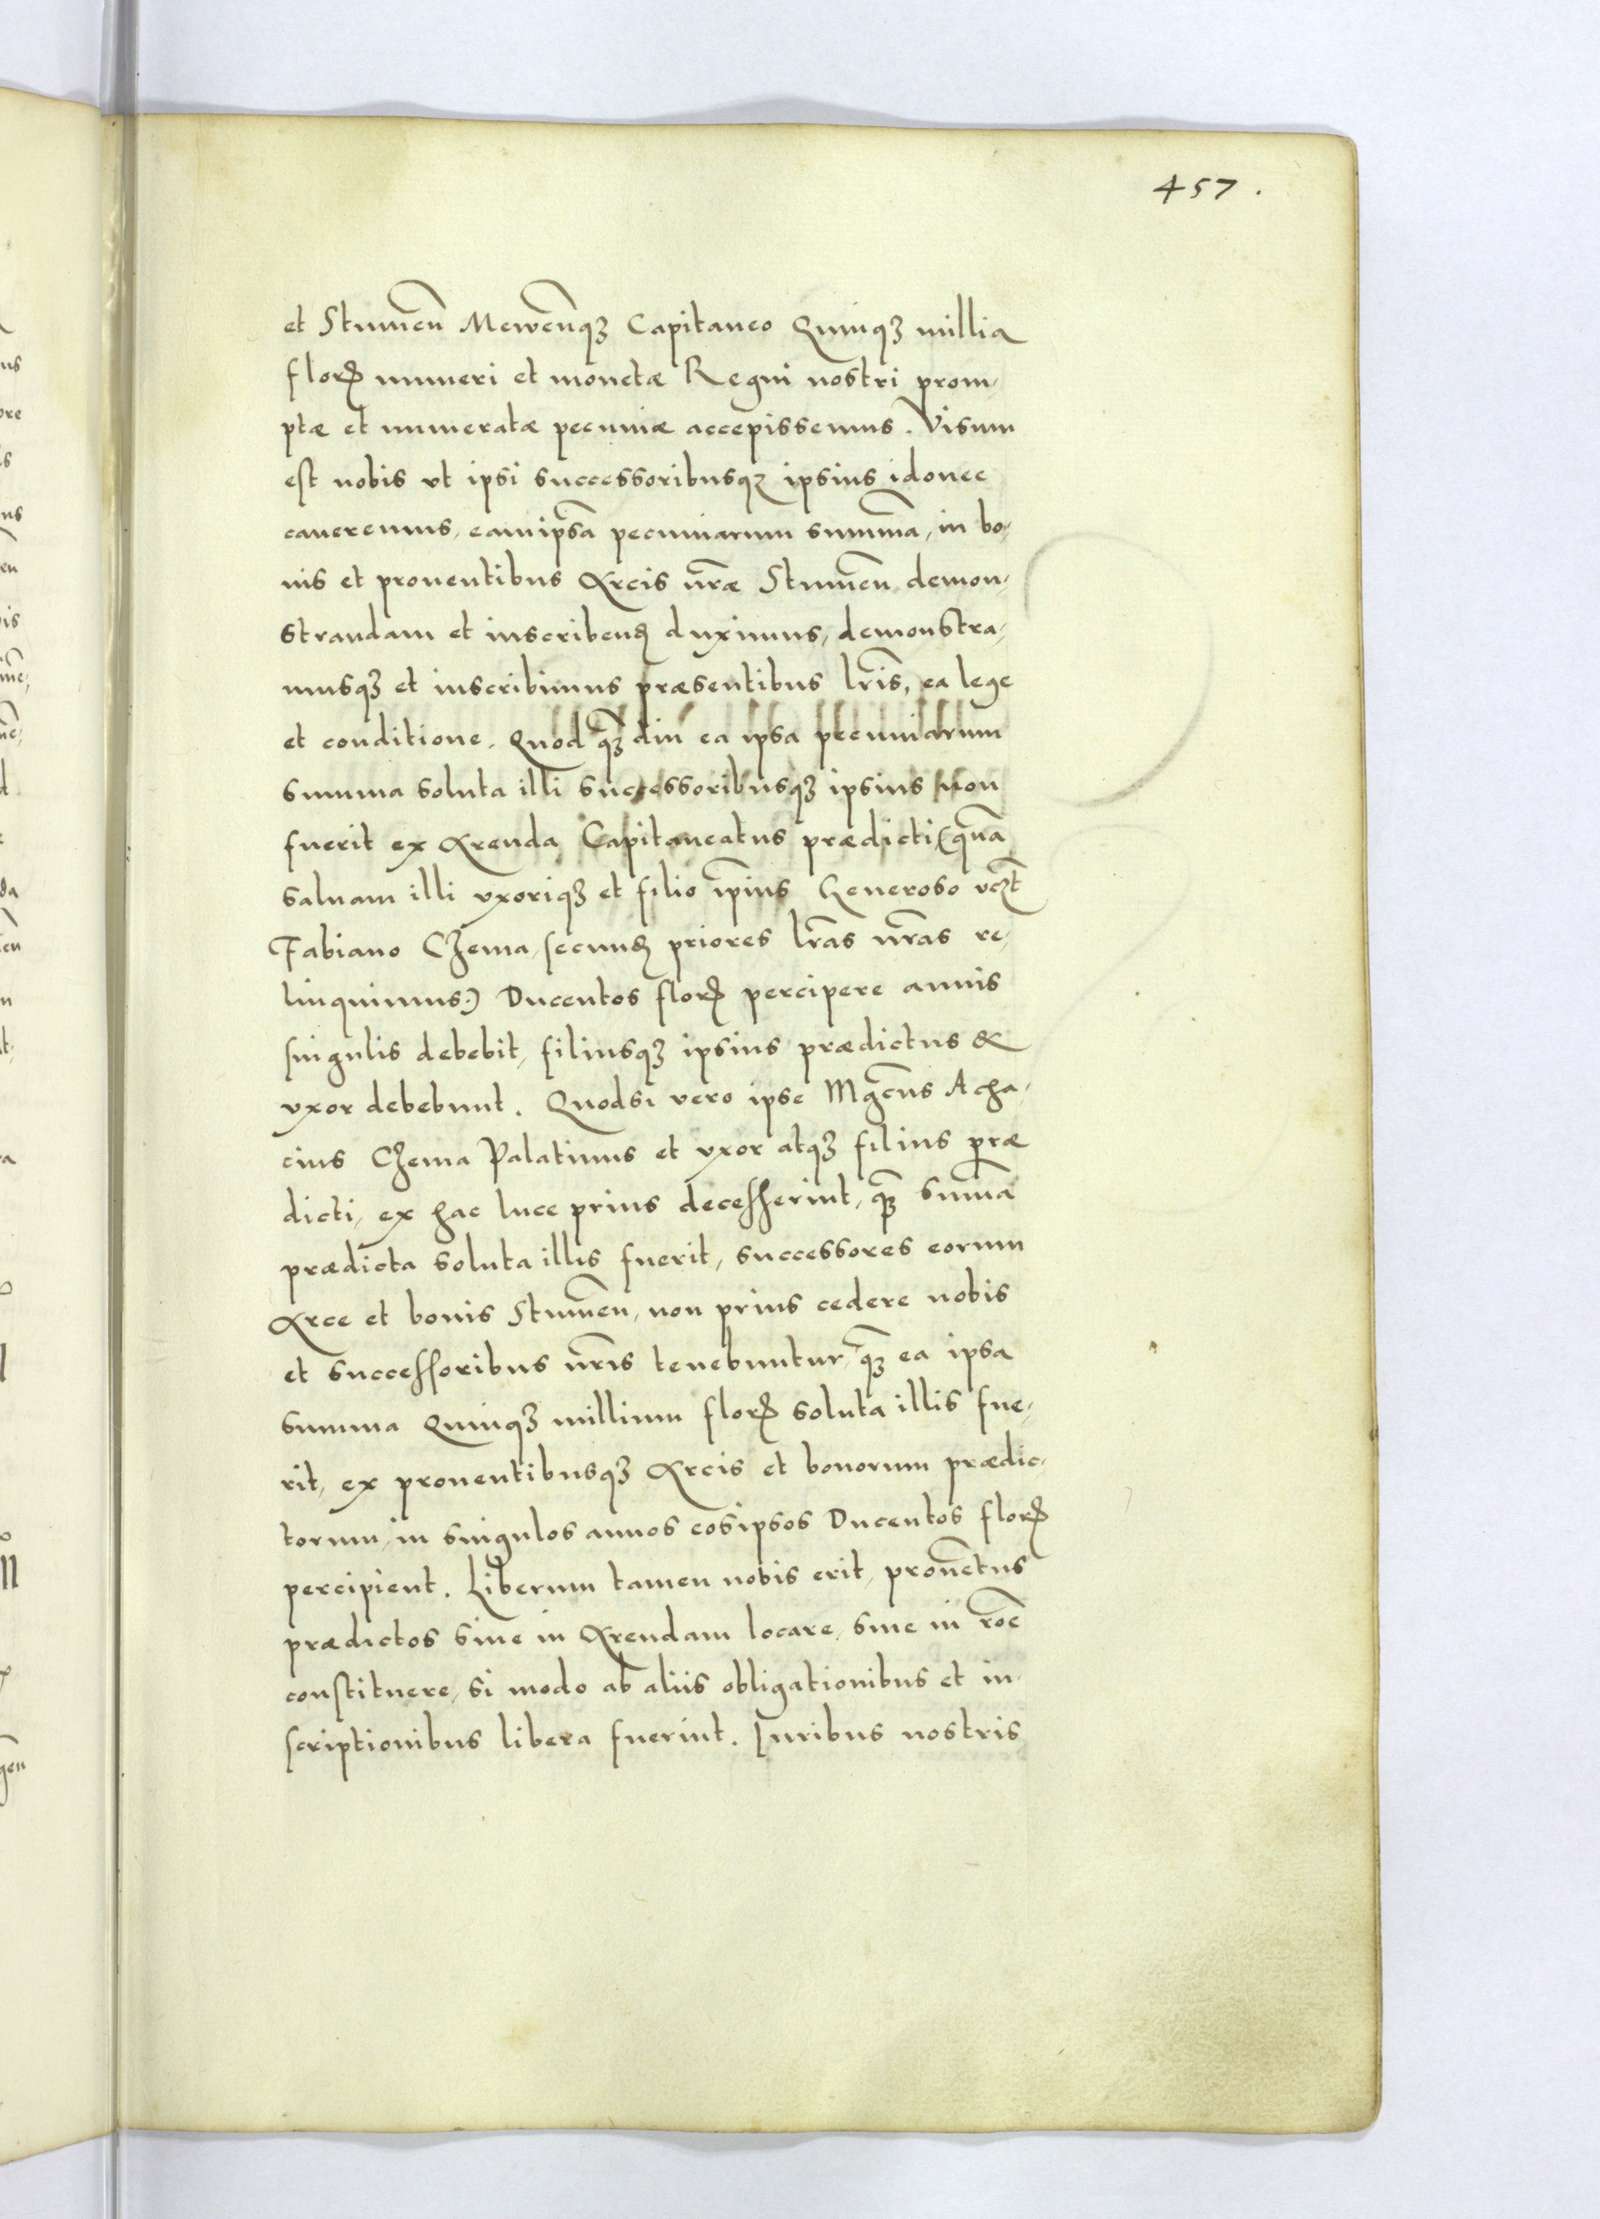 457.
et Stumeñ Mewen̄qꝫ Capitaneo Quinqꝫ millia
floꝝ numeri et monetæ Regni nostri prom,
ptæ et numeratæ pecuniæ accepissemus. Visum
est nobis vt ipsi successoribusqꝫ ipsius idonee
caueremus, eamipsā pecuniarum summā, in bo,
nis et prouentibus Arcis nr̄æ Stumeñ demon,
strandam et inscribenđ duximus, demonstra,
musqꝫ et inscribimus præsentibus lr̄is, ea lege
et conditione. Quod qꝫ̄ diu ea ipsa pecuniarum
summa soluta illi successoribusqꝫ ipsius non
fuerit ex Arenda Capitaneatus prædicti (quā
saluam illi vxoriqꝫ et filio ip̄ius Generoso vcꝫt
Fabiano Czema, secunđ priores lr̄as nr̄as re,
linquimus:) Ducentos floꝝ percipere annis
singulis debebit, filiusqꝫ ipsius prædictus &
vxor debebunt. Quodsi vero ipse Mgcūs Acha,
cius Czema Palatinus et vxor atqꝫ filius præ
dicti, ex hac luce prius decesserint, qꝫ̄ summā
prædicta soluta illis fuerit, successores eorum
Arce et bonis Stumeñ, non prius cedere nobis
et successoribus nr̄is tenebuntur, qꝫ̄ ea ipsa
summa Quinqꝫ millium floꝝ soluta illis fue,
rit, ex prouentibusqꝫ Arcis et bonorum prædic,
torum, in singulos annos eosipsos Ducentos floꝝ
percipient. Liberum tamen nobis erit, prouētus
prædictos siue in Arendam locare, siue in roē
constituere, si modo ab aliis obligationibus et in,
scriptionibus libera fuerint. Iuribus nostris